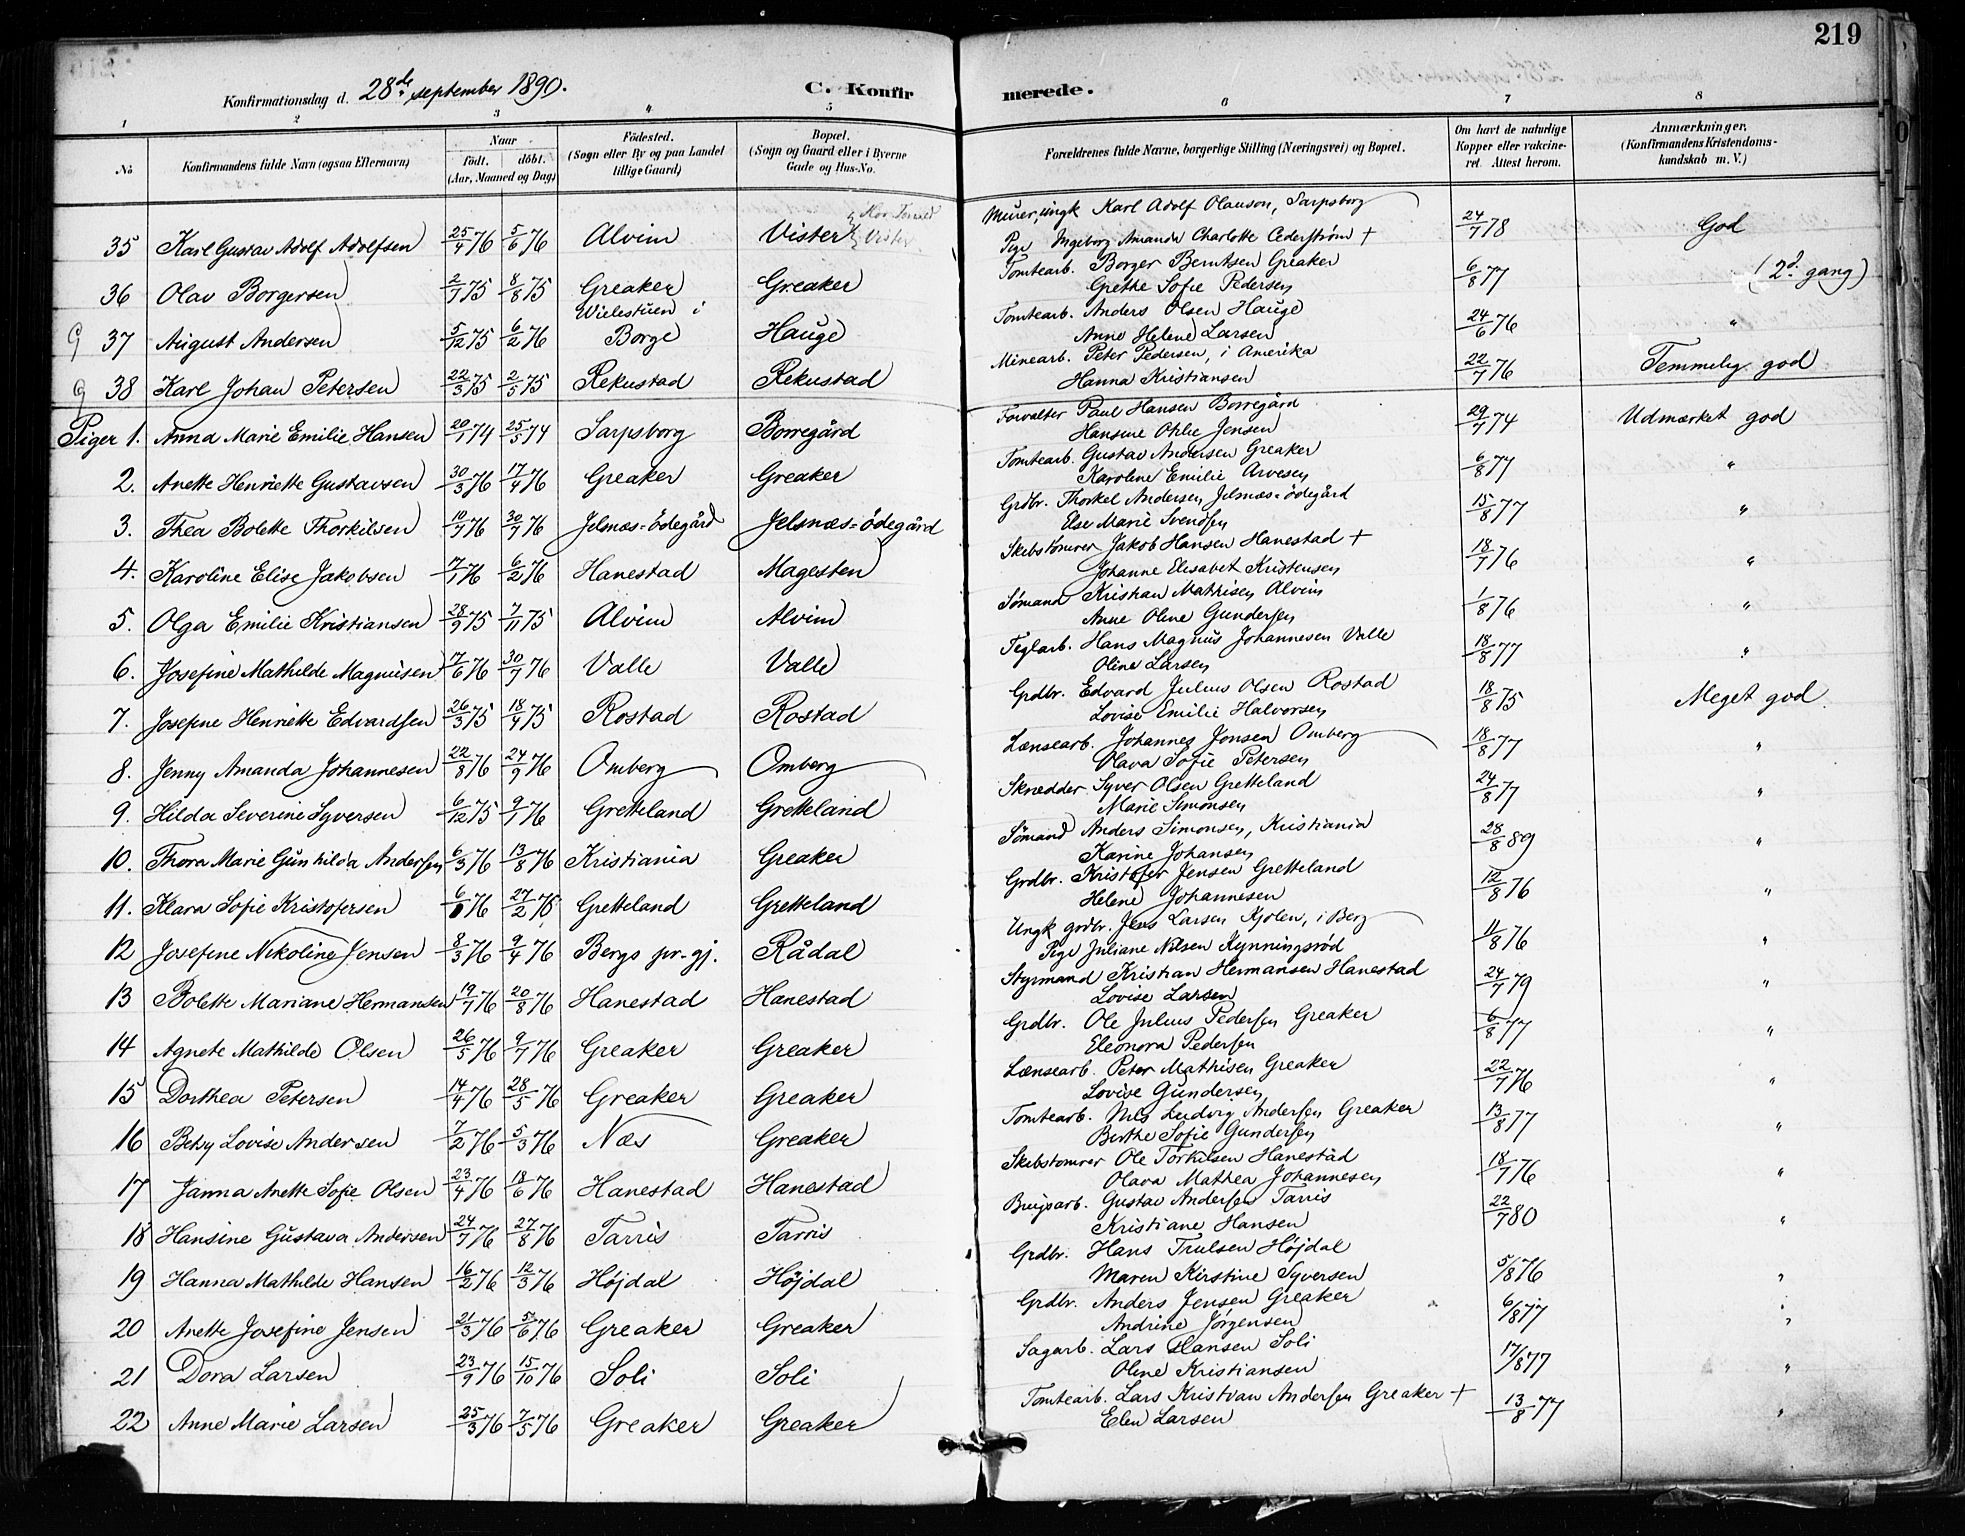 219
Konfirmationsdag d. 28de september 1890. C. Konfirmerede.
1 2 3 4 5 6 7 8
No Konfirmandens fulde Navn (ogsaa Efternavn) Naar født. døbt. (Aar, Maaned og Dag) Fødested. (Sogn eller By og paa Landet tillige Gaard) Bopæl. (Sogn og Gaard eller i Byerne Gade og Hus-No. Forældrenes fulde Navne, borgerlige Stilling (Næringsvei) og Bopæl. Om havt de naturlige Kopper eller vakcineret. Attest herom. Anmærkninger. (Konfirmandens Kristendomskundskab m. V.)
35 Karl Gustav Adolf Adolfsen 25/4 76 5/6 76 Alvim Vister Murer, ungk Karl Adolf Olauson, Sarpsborg 24/7 78 God
Pige Ingeborg Amanda Charlotte Cederstrøm +
36 Olav Borgersen 2/7 75 8/8 75 Greaker Greaker Tomtearb. Borger Berntsen Greaker 6/8 77 " (2d. gang)
Grethe Sofie Pedersen
37 August Andersen 5/12 75 6/2 76 Wielestuen i Borge Hauge Tomtearb. Anders Olsen Hauge 24/6 76 "
Anne Helene Larsen
38 Karl Johan Petersen 22/3 75 2/5 75 Rekustad Rekustad Minearb. Peter Pedersen, i Amerika 22/7 76 Temmelig god
Hanna Kristiansen
Piger 1. Anna Marie Emilie Hansen 20/1 74 25/5 74 Sarpsborg Borregård Forvalter Paul Hansen Borregård 29/7 74 Udmærket god
Hansine Jensen
2. Anette Henriette Gustavsen 30/3 76 17/4 76 Greaker Greaker Tomtearb. Gustav Andersen Greaker 6/8 77 "
Karoline Emilie Arvesen
3. Thea Bolette Thorkilsen 10/7 76 30/7 76 Jelsnæs-ödegård Jelsnæs-ödegård Grdbr. Thorkel Andersen Jelsnæs-ödegård 15/8 77 "
Else Marie Svendsen
4. Karoline Elise Jakobsen 7/1 76 6/2 76 Hanestad Magesten Skibstømrer Jakob Hansen Hanestad + 18/7 76 "
Johanne Elisabet Kristensen
5. Olga Emilie Kristiansen 28/9 75 7/11 75 Alvim Alvim Sømand Kristian Mathisen Alvim 1/8 76 "
Anne Oline Gundersen
6. Josefine Mathilde Magnusen 17/6 76 30/7 76 Valle Valle Teglarb. Hans Magnus Johannesen Valle 18/8 77 "
Oline Larsen
7. Josefine Henriette Edvardsen 26/3 75 18/4 75 Rostad Rostad Grdbr. Edvard Julius Olsen Rostad 18/8 75 Meget god.
Lovise Emilie Halvorsen
8. Jenny Amanda Johannesen 22/8 76 24/9 76 Omberg Omberg Lænsearb. Johannes Jonsen Omberg 18/8 77 "
Olava Sofie Petersen
9. Hilda Severine Syversen 6/12 75 9/1 76 Gretteland Gretteland Skrædder Syver Olsen Gretteland 24/8 77 "
Marie Simonsen
10. Thora Marie Gunhilda Andersen 6/3 76 13/8 76 Kristiania Greaker Sømand Anders Simonsen, Kristiania 28/8 89 "
Karine Johansen
11. Klara Sofie Kristofersen 27/2 76 Gretteland Gretteland Grdbr. Kristofer Jensen Gretteland 12/8 76 "
Helene Johannesen
12 Josefine Nikoline Jensen 8/3 76 9/4 76 Bergs pr.gj. Rådal Ungk grdbr. Jens Larsen Kjølen, i Berg 11/8 76 "
Pige Juliane Nilsen Kynningsrød
13 Bolette Mariane Hermansen 19/7 76 20/8 76 Hanestad Hanestad Styrmand Kristian Hermansen Hanestad 24/7 79 "
Lovise Larsen
14 Agnete Mathilde Olsen 26/5 76 9/7 76 Greaker Greaker Grdbr. Ole Julius Pedersen Greaker 6/8 77 "
Eleonora Pedersen
15 Dorthea Petersen 14/4 76 28/5 76 Greaker Greaker Lænsearb. Peter Mathisen Greaker 22/7 76 "
Lovise Gundersen
16 Betsy Lovise Andersen 7/2 76 5/3 76 Næs Greaker Tomtearb. Nils Ludvig Andersen Greaker 13/8 77 "
Berthe Sofie Gundersen
17 Janna Anette Sofie Olsen 23/4 76 18/6 76 Hanestad Hanestad Skibstomrer Ole Torkilsen Hanestad 18/7 76 "
Olava Mathea Johannesen
18 Hansine Gustava Andersen 24/7 76 27/8 76 Tarris Tarris Brugsarb. Gustav Andersen Tarris 22/7 80 "
Kristiane Hansen
19 Hanna Mathilde Hansen 16/2 76 12/3 76 Højdal Højdal Grdbr. Hans Trulsen Højdal 5/8 76 "
Maren Kirstine Syversen
20 Anette Josefine Jensen 21/3 76 5/6 76 Greaker Greaker Grdbr. Anders Jensen Greaker 6/8 77 "
Andrine Jørgensen
21 Dora Larsen 23/9 76 15/10 76 Soli Soli Sagarb. Lars Hansen Soli 17/8 77 "
Oline Kristiansen
22 Anne Marie Larsen 25/3 76 7/5 76 Greaker Greaker Tomtearb. Lars Kristian Andersen Greaker + 13/8 77 "
Elen Larsen